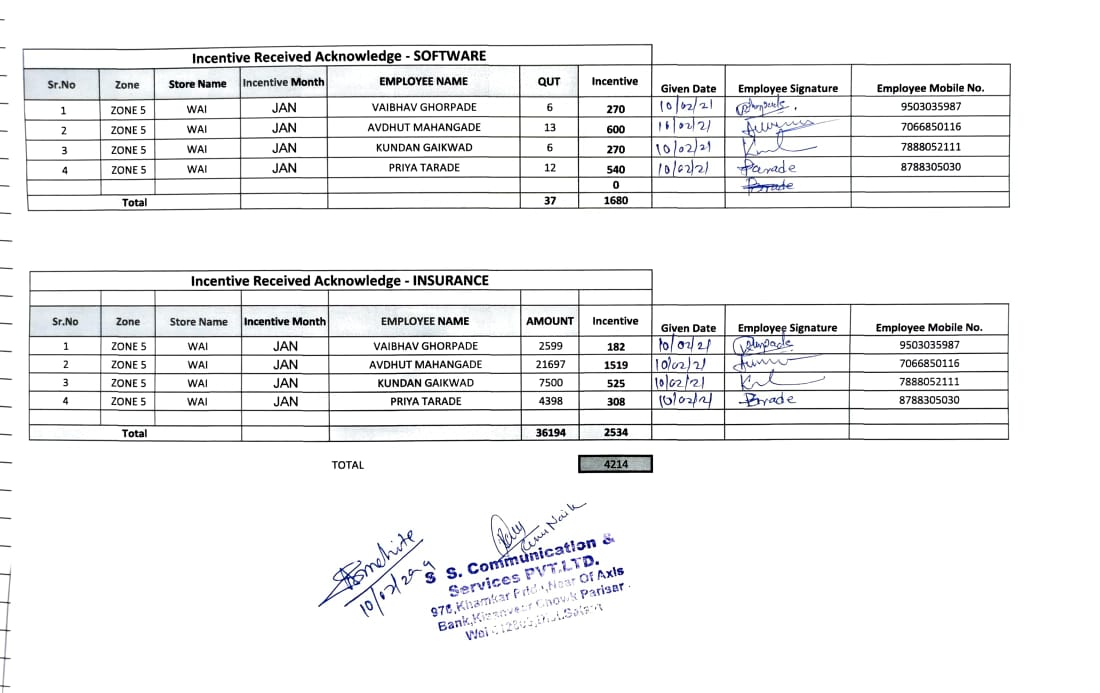 Incentive Received Acknowledge - SOFTWARE
Sr.No Zone Store Name Incentive Month EMPLOYEE NAME QUT Incentive Given Date Employee Signature Employee Mobile No.
1 ZONE 5 WAI JAN VAIBHAV GHORPADE 6 270 10/02/21 9503035987
2 ZONE 5 WAI JAN AVDHUT MAHANGADE 13 600 10/02/21 7066850116
3 ZONE 5 WAI JAN KUNDAN GAIKWAD 6 270 10/02/21 7888052111
4 ZONE 5 WAI JAN PRIYA TARADE 12 540 10/02/21 8788305030
0
Total 37 1680
Incentive Received Acknowledge - INSURANCE
Sr.No Zone Store Name Incentive Month EMPLOYEE NAME AMOUNT Incentive Given Date Employee Signature Employee Mobile No.
1 ZONE 5 WAI JAN VAIBHAV GHORPADE 2599 182 10/02/21 9503035987
2 ZONE 5 WAI JAN AVDHUT MAHANGADE 21697 1519 10/02/21 7066850116
3 ZONE 5 WAI JAN KUNDAN GAIKWAD 7500 525 10/02/21 7888052111
4 ZONE 5 WAI JAN PRIYA TARADE 4398 308 10/02/21 8788305030
Total 36194 2534
TOTAL 4214
S S. Communication &
Services PVT.LTD.
976,Khamkar Near Of Axis
Bank,Kisanveer Chowk Parisar.
Wai